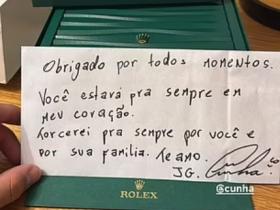 ROLEX
Obrigado por todos momentos.
Você estará pra sempre em
meu coração.
Torcerei pra sempre por você e
por sua família. Te amo.
JG. Cunha!
@cunha
ROLEX